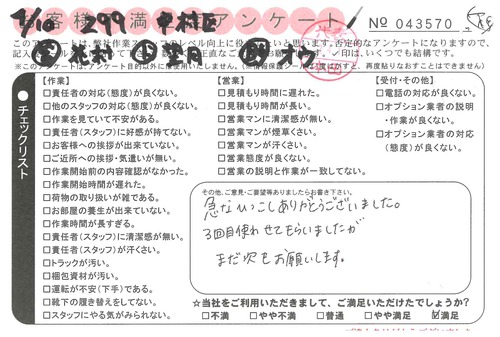 お客様満足アンケート
№ 043570
9/10 299 中村区
このアンケートは、弊社作業スタッフのレベル向上に役立
と思います。否定的なアンケートになりますので、
※このアンケートは、アンケート目的以外に使用いたしません。
チェックリスト
【作業】
□責任者の対応(態度)が良くない。
□他のスタッフの対応(態度)が良くない。
□作業を見ていて不安がある。
□責任者(スタッフ)に好感が持てない。
□お客様への挨拶が出来ていない。
□ご近所への挨拶・気遣いが無い。
□作業開始前の内容確認がなかった。
□作業開始時間が遅れた。
□荷物の取り扱いが雑である。
□お部屋の養生が出来ていない。
□作業時間が長すぎる。
□責任者(スタッフ)に清潔感が無い。
□責任者(スタッフ)が汗くさい。
□トラックが汚い。
□梱包資材が汚い。
□運転が不安(下手)である。
□靴下の履き替えをしてない。
□スタッフにやる気がみられない。
【営業】
□見積もり時間に遅れた。
□見積もり時間が長い。
□営業マンに清潔感が無い。
□営業マンが煙草くさい。
□営業マンが汗くさい。
□営業態度が良くない。
□営業の説明と作業が一致してない。
【受付・その他】
□電話の対応が良くない。
□オプション業者の説明
・作業が良くない。
□オプション業者の対応
(態度)が良くない。
その他、ご意見・ご要望等ありましたらお書き下さい。
急なひっこしありがとうございました。
3回目使わせてもらいましたが
また次もお願いします。
☆当社をご利用いただきまして、ご満足いただけたでしょうか?
□不満 □やや不満 □普通 □やや満足 ☑満足